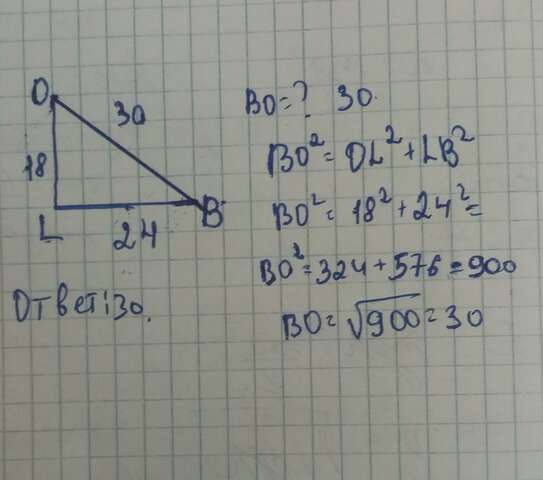 O
30
18
L
24
B
BO=? 30.
BO²=OL²+LB²
BO²=18²+24²=
BO²=324+576=900
BO=√900=30
Ответ: 30.